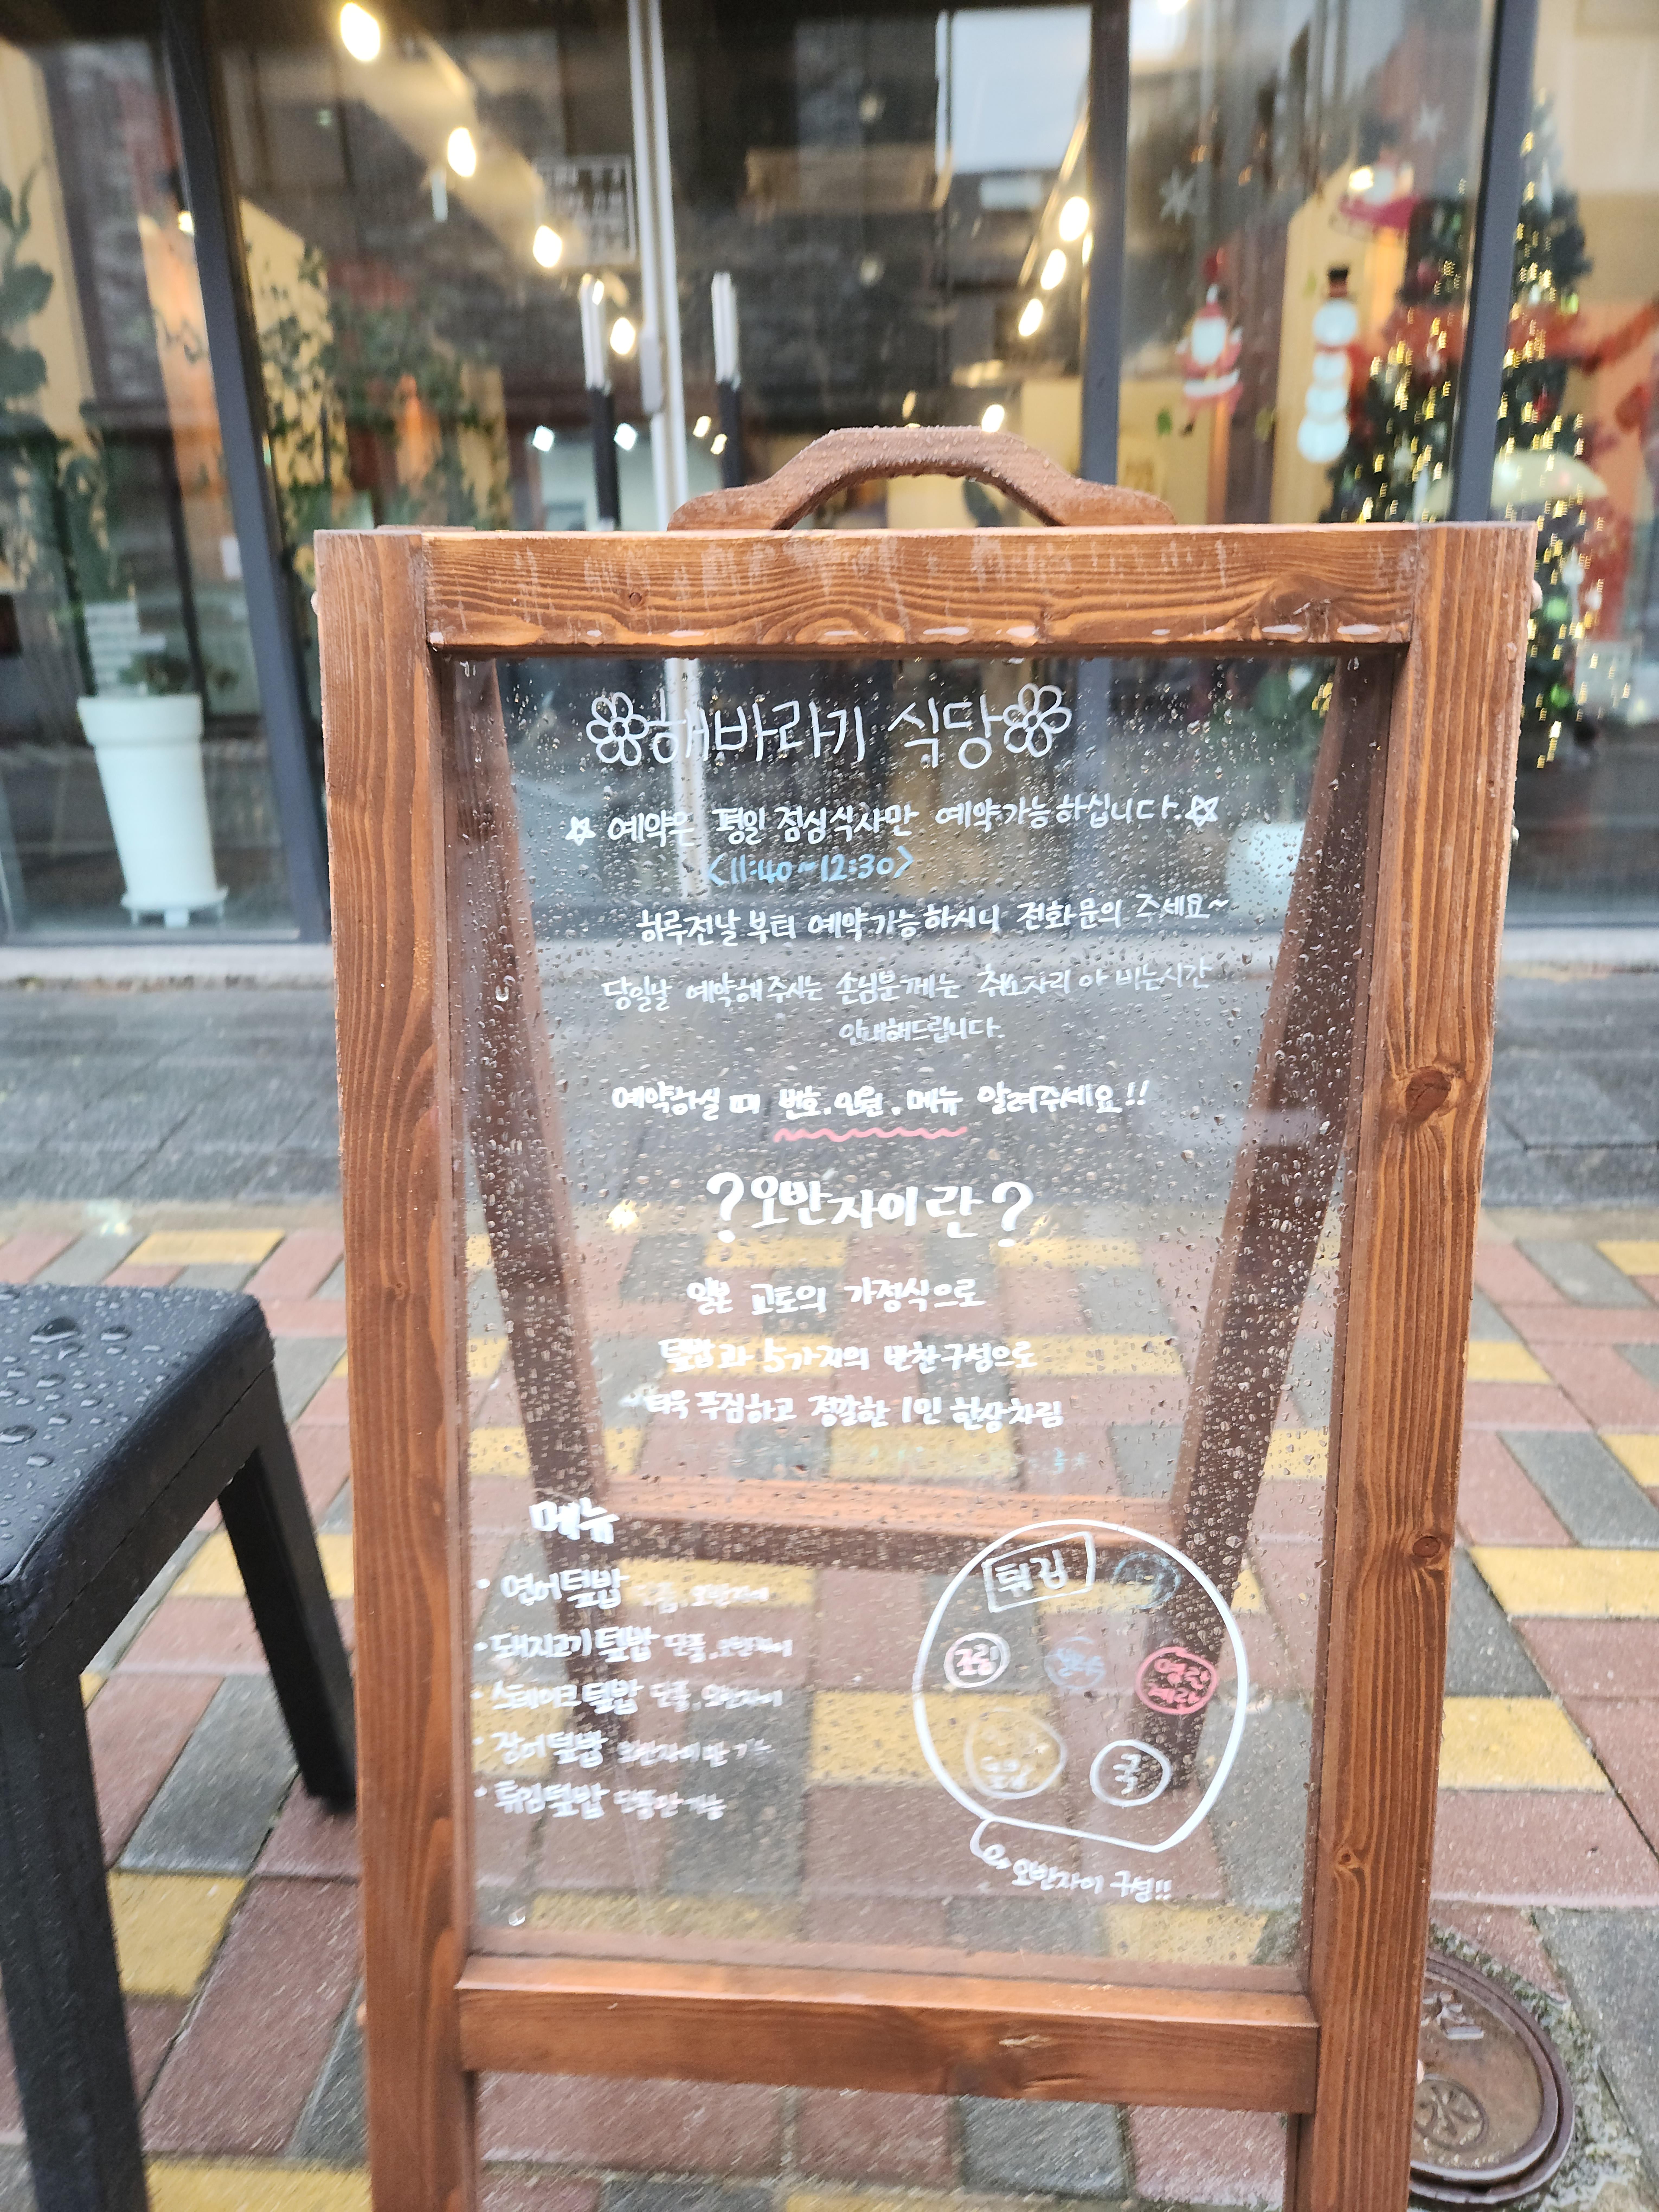 해바라기 식당
예약은 평일 점심식사만 예약가능하십니다.
<11:40~12:30>
하루전날부터 예약가능하시니 전화문의 주세요~
당일날 예약해주시는 손님분께는 자리
안내해드립니다.
예약하실 때 번호, 인원, 메뉴 알려주세요!!
?오반자이란?
일본 교토의 가정식으로
덮밥과 5가지의 반찬구성으로
더욱 푸짐하고 정갈한 1인 한상차림
메뉴
· 연어덮밥 단품, 오반자이
· 돼지고기덮밥 단품, 오반자이
· 스테이크덮밥 단품, 오반자이
· 장어덮밥 오반자이만 가능
· 튀김덮밥 단품만 가능
튀김
조림
명란
계란
국
오반자이 구성!!